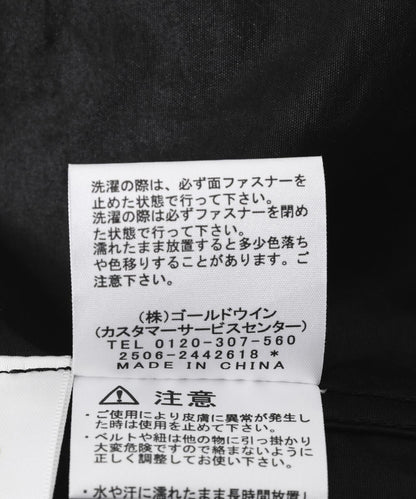 洗濯の際は、必ず面ファスナーを
止めた状態で行って下さい。
洗濯の際は必ずファスナーを閉め
た状態で行って下さい。
濡れたまま放置すると多少色落ち
や色移りすることがあります。ご
注意下さい。
(株)ゴールドウイン
(カスタマーサービスセンター)
TEL 0120-307-560
2506-2442618 *
MADE IN CHINA
注意
・ご使用により皮膚に異常が発生し
た時は使用を止めて下さい。
・ベルトや紐は他の物に引っ掛かり
大変危険ですので絡まないように
正しく調整してお使い下さい。
・水や汗に濡れたまま長時間放置し